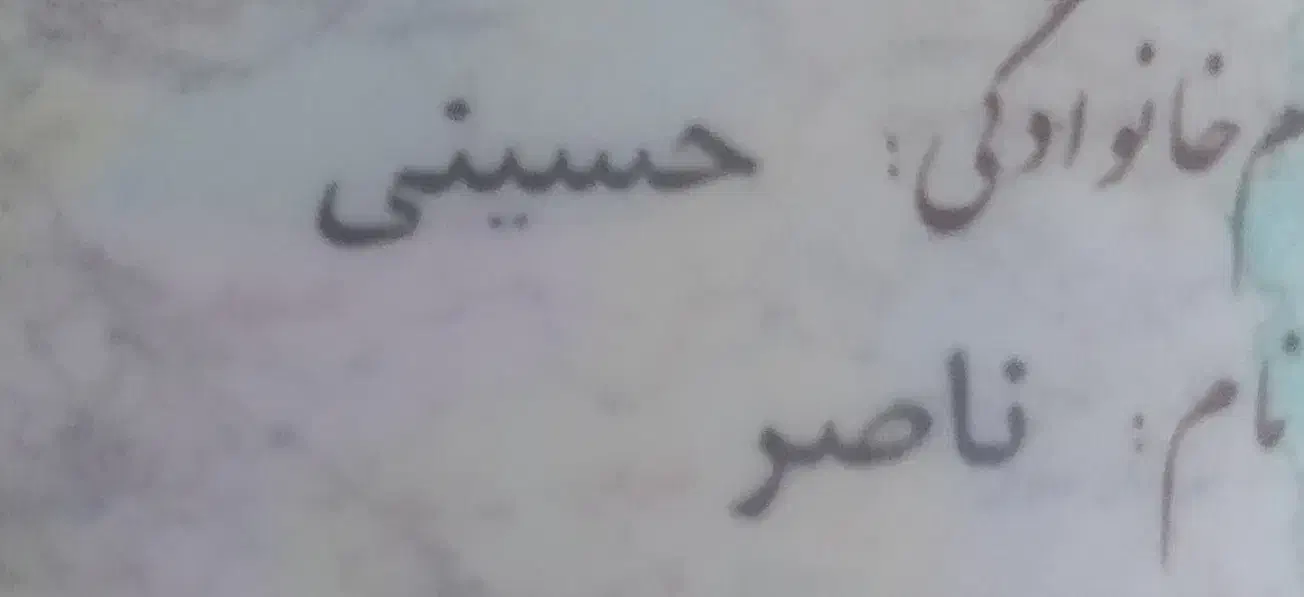 م خانوادگی: حسینی
نام: ناصر